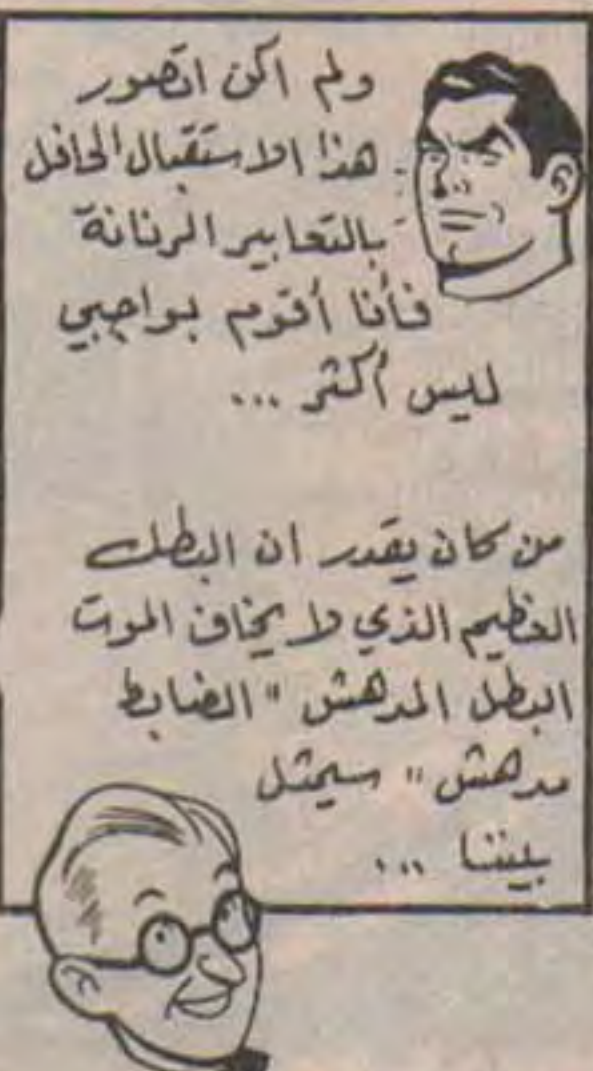 ولم اكن اتصور
هذا الاستقبال الحافل
بالتعابير الرنانة
فأنا أقوم بواجبي
ليس أكثر ...
من كان يقدر ان البطل
العظيم الذي لا يخاف الموت
البطل المدهش " الضابط
مدهش " سيمثل
بيننا ...